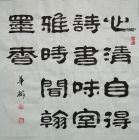 心清自得
詩書味室
雅時聞翰
墨香